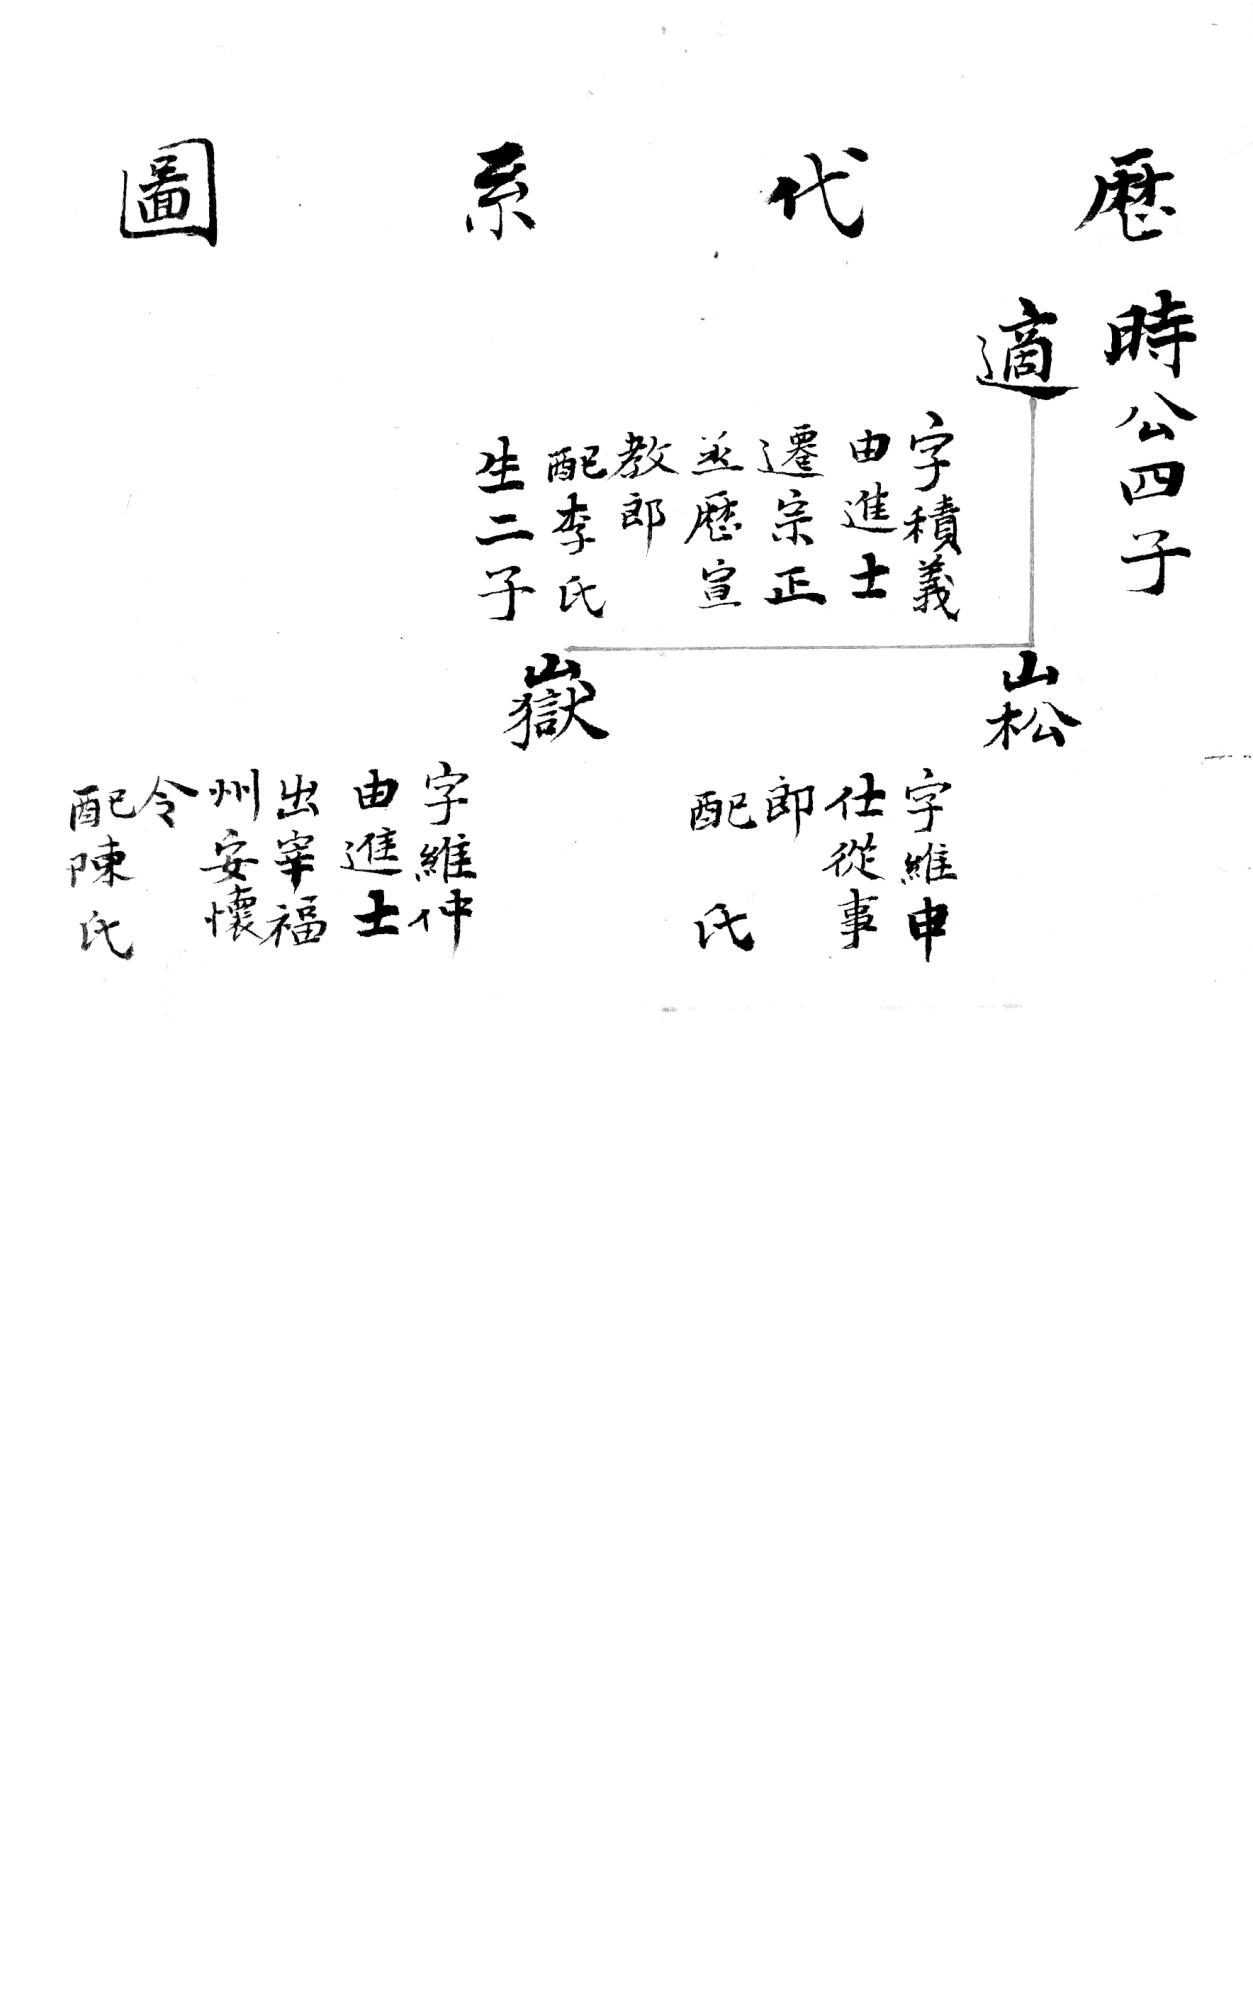 歷代系圖
時公四子
適
字積義
由進士
遷宗正
丞歷宣
教郎
配李氏
生二子
崧
字維申
仕從事
郎
配 氏
嶽
字維仲
由進士
出宰福
州安懷
令
配陳氏